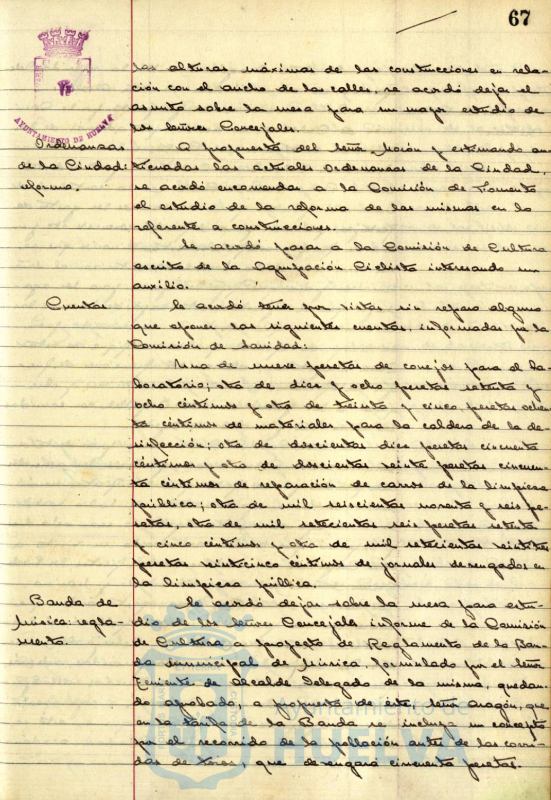 67
AYUNTAMIENTO DE HUELVA
las alturas máximas de las construcciones en rela-
ción con el ancho de las calles, se acordó dejar el
asunto sobre la mesa para un mayor estudio de
los señores Concejales.
Ordenanzas
de la Ciudad:
reforma.
A propuesta del señor Morón y estimando an-
ticuadas las actuales Ordenanzas de la Ciudad,
se acordó encomendar a la Comisión de Fomento
el estudio de la reforma de las mismas en lo
referente a construcciones.
Se acordó pasar a la Comisión de Cultura
escrito de la Agrupación Ciclista interesando un
auxilio.
Cuentas
Se acordó tener por vistas sin reparo alguno
que oponer las siguientes cuentas, informadas por la
Comisión de Sanidad:
Una de nueve pesetas de conejos para el la-
boratorio; otra de diez y ocho pesetas setenta y
ocho céntimos y otra de treinta y cinco pesetas ochen-
ta céntimos de materiales para la caldera de la de-
sinfección; otra de doscientas diez pesetas cincuenta
céntimos y otra de doscientas veinte pesetas cincuen-
ta céntimos de reparación de carros de la limpieza
pública; otra de mil seiscientas noventa y seis pe-
setas, otra de mil setecientas seis pesetas setenta
y cinco céntimos y otra de mil setecientas veintitrés
pesetas veinticinco céntimos de jornales devengados en
la limpieza pública.
Banda de
Música: regla-
mento.
Se acordó dejar sobre la mesa para estu-
dio de los señores Concejales informe de la Comisión
de Cultura y proyecto de Reglamento de la Ban-
da municipal de Música, formulado por el señor
Teniente de Alcalde Delegado de la misma, quedan-
do aprobado, a propuesta de este, señor Aragón, que
en la tarifa de la Banda se incluya un concepto
por el recorrido de la población antes de las corri-
das de toros, que devengará cincuenta pesetas.
Ayuntamiento de
HUELVA